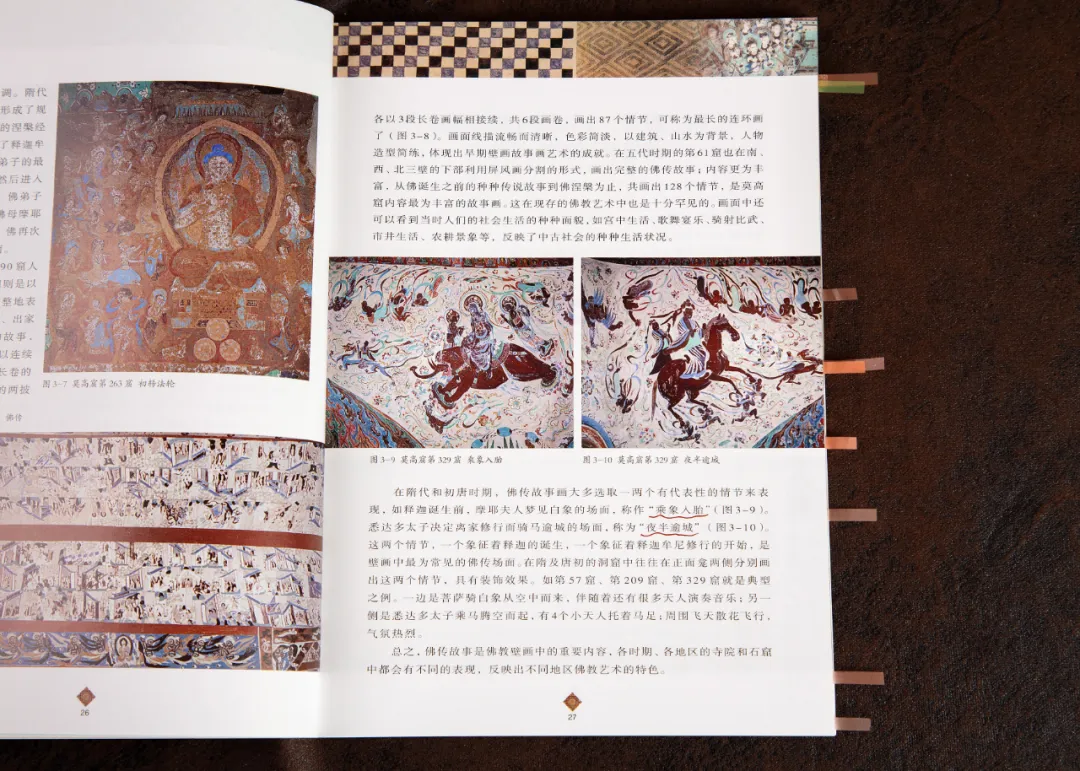 调。隋代
形成了规
的涅槃经
了释迦牟
弟子的最
然后进入
佛弟子
佛母摩耶
佛再次
90窟人
则是以
整地表
、出家
故事、
以连续
长卷的
的两披
图3-7 莫高窟第263窟 初转法轮
佛传
26
各以3段长卷画幅相接续，共6段画卷，画出87个情节，可称为最长的连环画
了（图3-8）。画面线描流畅而清晰，色彩简淡，以建筑、山水为背景，人物
造型简练，体现出早期壁画故事画艺术的成就。在五代时期的第61窟也在南、
西、北三壁的下部利用屏风画分割的形式，画出完整的佛传故事；内容更为丰
富，从佛诞生之前的种种传说故事到佛涅槃为止，共画出128个情节，是莫高
窟内容最为丰富的故事画。这在现存的佛教艺术中也是十分罕见的。画面中还
可以看到当时人们的社会生活的种种面貌，如宫中生活、歌舞宴乐、骑射比武、
市井生活、农耕景象等，反映了中古社会的种种生活状况。
图3-9 莫高窟第329窟 乘象入胎
图3-10 莫高窟第329窟 夜半逾城
在隋代和初唐时期，佛传故事画大多选取一两个有代表性的情节来表
现，如释迦诞生前，摩耶夫人梦见白象的场面，称作“乘象入胎”（图3-9）。
悉达多太子决定离家修行而骑马逾城的场面，称为“夜半逾城”（图3-10）。
这两个情节，一个象征着释迦的诞生，一个象征着释迦牟尼修行的开始，是
壁画中最为常见的佛传场面。在隋及唐初的洞窟中往往在正面龛两侧分别画
出这两个情节，具有装饰效果。如第57窟、第209窟、第329窟就是典型
之例。一边是菩萨骑白象从空中而来，伴随着还有很多天人演奏音乐；另一
侧是悉达多太子乘马腾空而起，有4个小天人托着马足；周围飞天散花飞行，
气氛热烈。
总之，佛传故事是佛教壁画中的重要内容，各时期、各地区的寺院和石窟
中都会有不同的表现，反映出不同地区佛教艺术的特色。
27